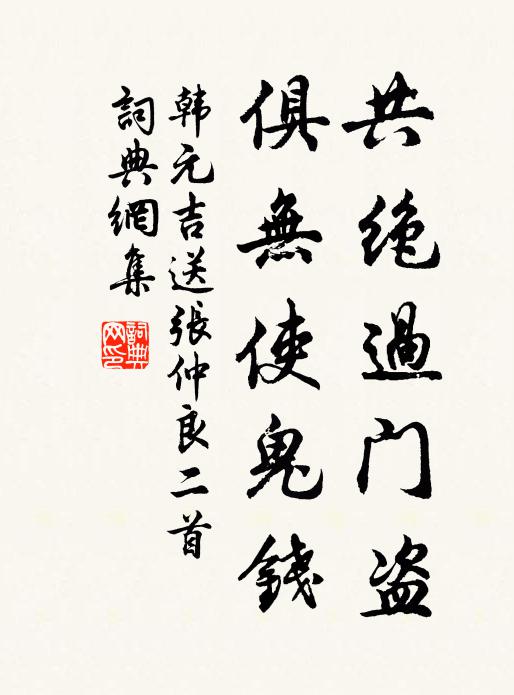 共绝過门盗
俱無使鬼錢
韩元吉送張仲良二首
詞典網集
詞典网印